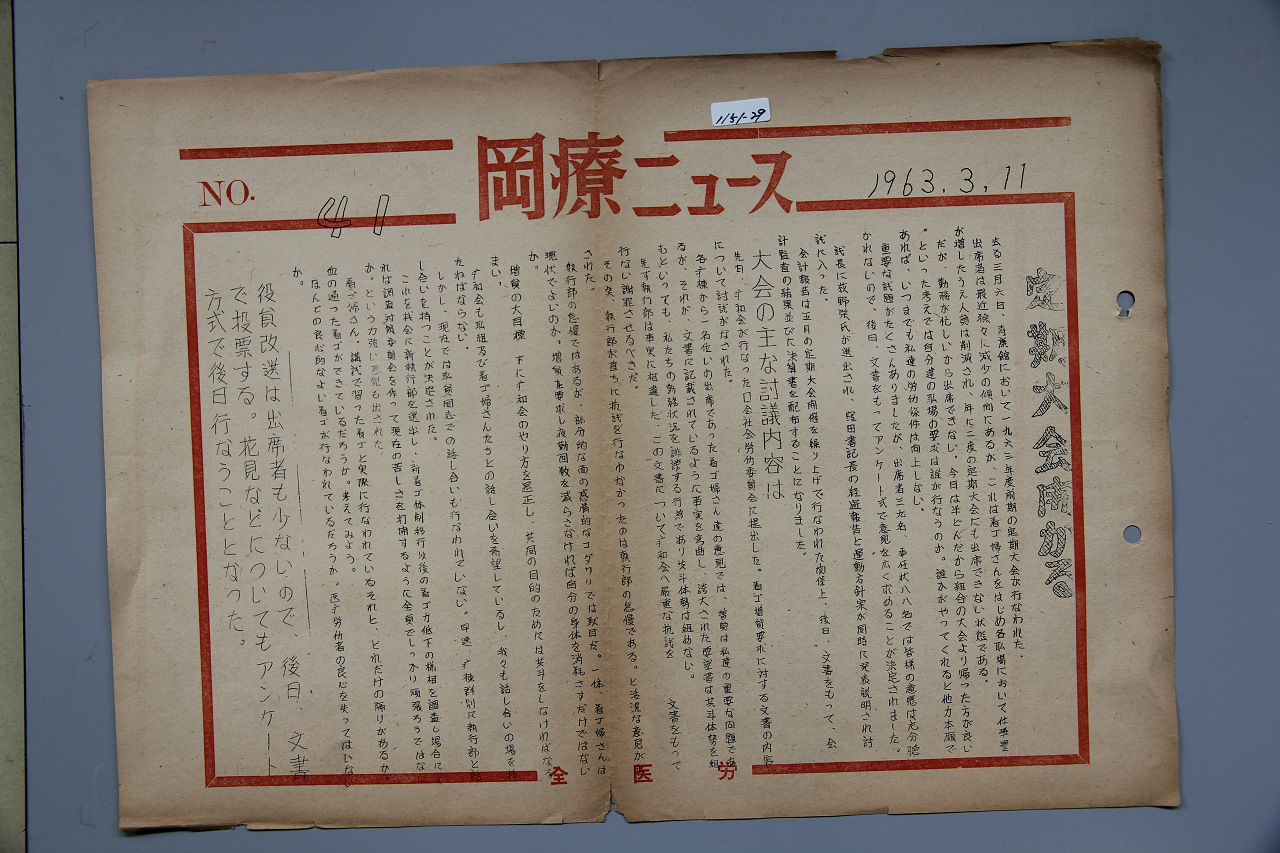 1151-29
岡療ニュース
NO. 41
1963.3.11
定期大会開かる
去る三月六日、寿康館において一九六三年度前期の定期大会が行なわれた。
出席者は最近徐々に減少の傾向にあるが、これは看ゴ婦さんをはじめ各職場において仕事量
が増したうえ人員は削減され、年に二度の定期大会にも出席できない状態である。
だが、勤務が忙しいから出席できない。今日は半どんだから組合の大会より帰った方が良い
。といった考えでは自分達の職場の要求は誰が行なうのか。誰かがやってくれると他力本願で
あれば、いつまでも私達の労働条件は向上しない。
重要な議題がたくさんありましたが、出席者三九名、委任状八八名では皆様の意思は充分聴
かれないので、後日、文書をもってアンケート式で意見を広く求めることが決定されました。
議長に萩野栄氏が選出され、窪田書記長の経過報告と運動方針案が同時に発表説明され討
議に入った。
会計報告は五月の定期大会開催を繰り上げて行なわれた関係上、後日、文書をもって、会
計監査の結果並びに決算書を配布することになりました。
大会の主な討議内容は
先日、ヂ和会が行なった口会社会労働委員会に提出した。看ゴ増員要求に対する文書の内容
について討議がなされた。
各ヂ棟から一名位いの出席であった看ゴ婦さん達の意見では、増員は私達の重要な問題であ
るが、それが、文書に記載されているように事実を歪曲し、誇大された要望書は共斗体勢を組
むといっても、私たちの勤務状況を誹謗する行為であり共斗体勢は組めない。
先ず執行部は事実に相違した、この文書についてヂ和会へ厳重な抗議を 文書をもって
行ない謝罪させるべきだ。
その矢、執行部が直ちに抗議を行なわなかったのは執行部の怠慢である。と活溌な意見が
された。
執行部の怠慢ではあるが、部分的な面の感情的なコダワリでは駄目だ。一体、看ゴ婦さんは
現状でよいのか。増員を要求し夜勤回数を減らさなければ自分の身体を消耗さすだけではない
か。
増員の大目標 下にヂ和会のやり方を是正し、共同の目的のためには共斗をしなければなら
まい。
ヂ和会も取組及び看ゴ婦さんたちとの話し合いを希望しているし、我々も話し合いの場を持
たねばならない。
しかし、現在では職員同志での話し合いも行なわれていない。早速、ヂ棟群別に執行部と話
し合いを持つことが決定された。
これを機会に新執行部を選出し、新看ゴ体制移行以後の看ゴ力低下の様相を調査し場合によ
れば調査対策委員会を作って現在の苦しさを打開するように全員でしっかり頑張ろうではない
か。という力強い意見も出された。
看ゴ婦さん、講試で習った看ゴと実際に行なわれているそれと、どれだけの隔りがあるか
血の通った看ゴができているだろうか。考えてみよう。
なんどの良心的なよい看ゴが行なわれているだろうか。医ヂ労働者の良心を失ってはいない
か。
役員改選は出席者も少ないので、後日、文書
で投票する。花見などについてもアンケート
方式で後日行なうこととなった。
全医労